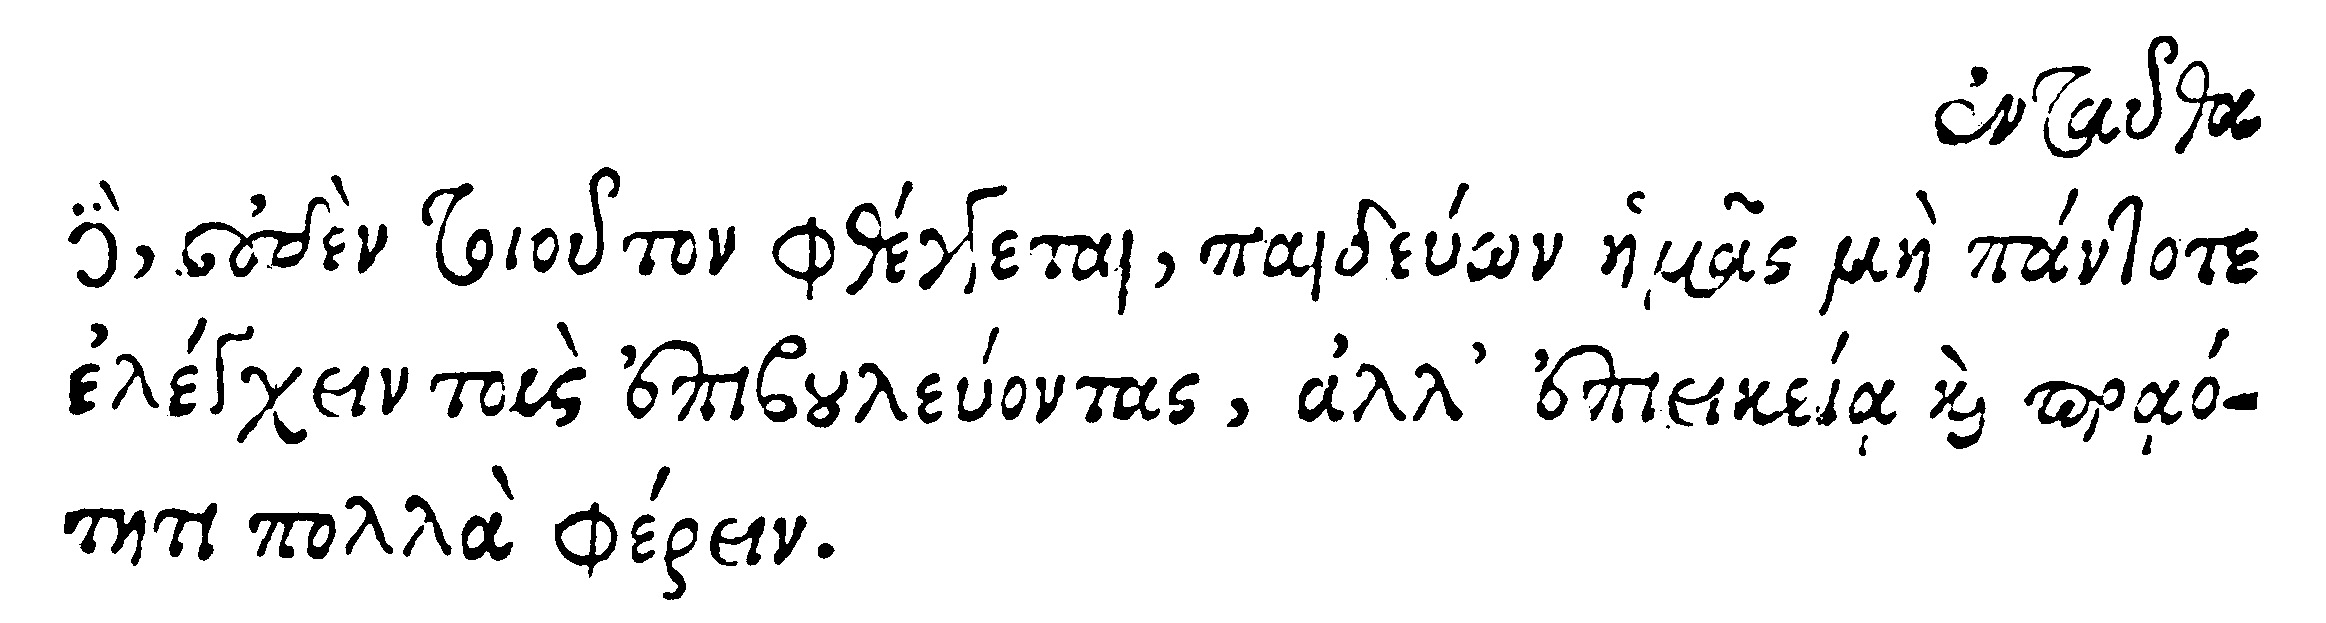 ἐνταῦθα
δὲ, οὐδὲν τοιοῦτον φθέγγεται, παιδεύων ἡμᾶς μὴ πάντοτε
ἐλέγχειν τοὺς ἐπιβουλεύοντας, ἀλλ' ἐπιεικείᾳ καὶ πρᾳό-
τητι πολλὰ φέρειν.